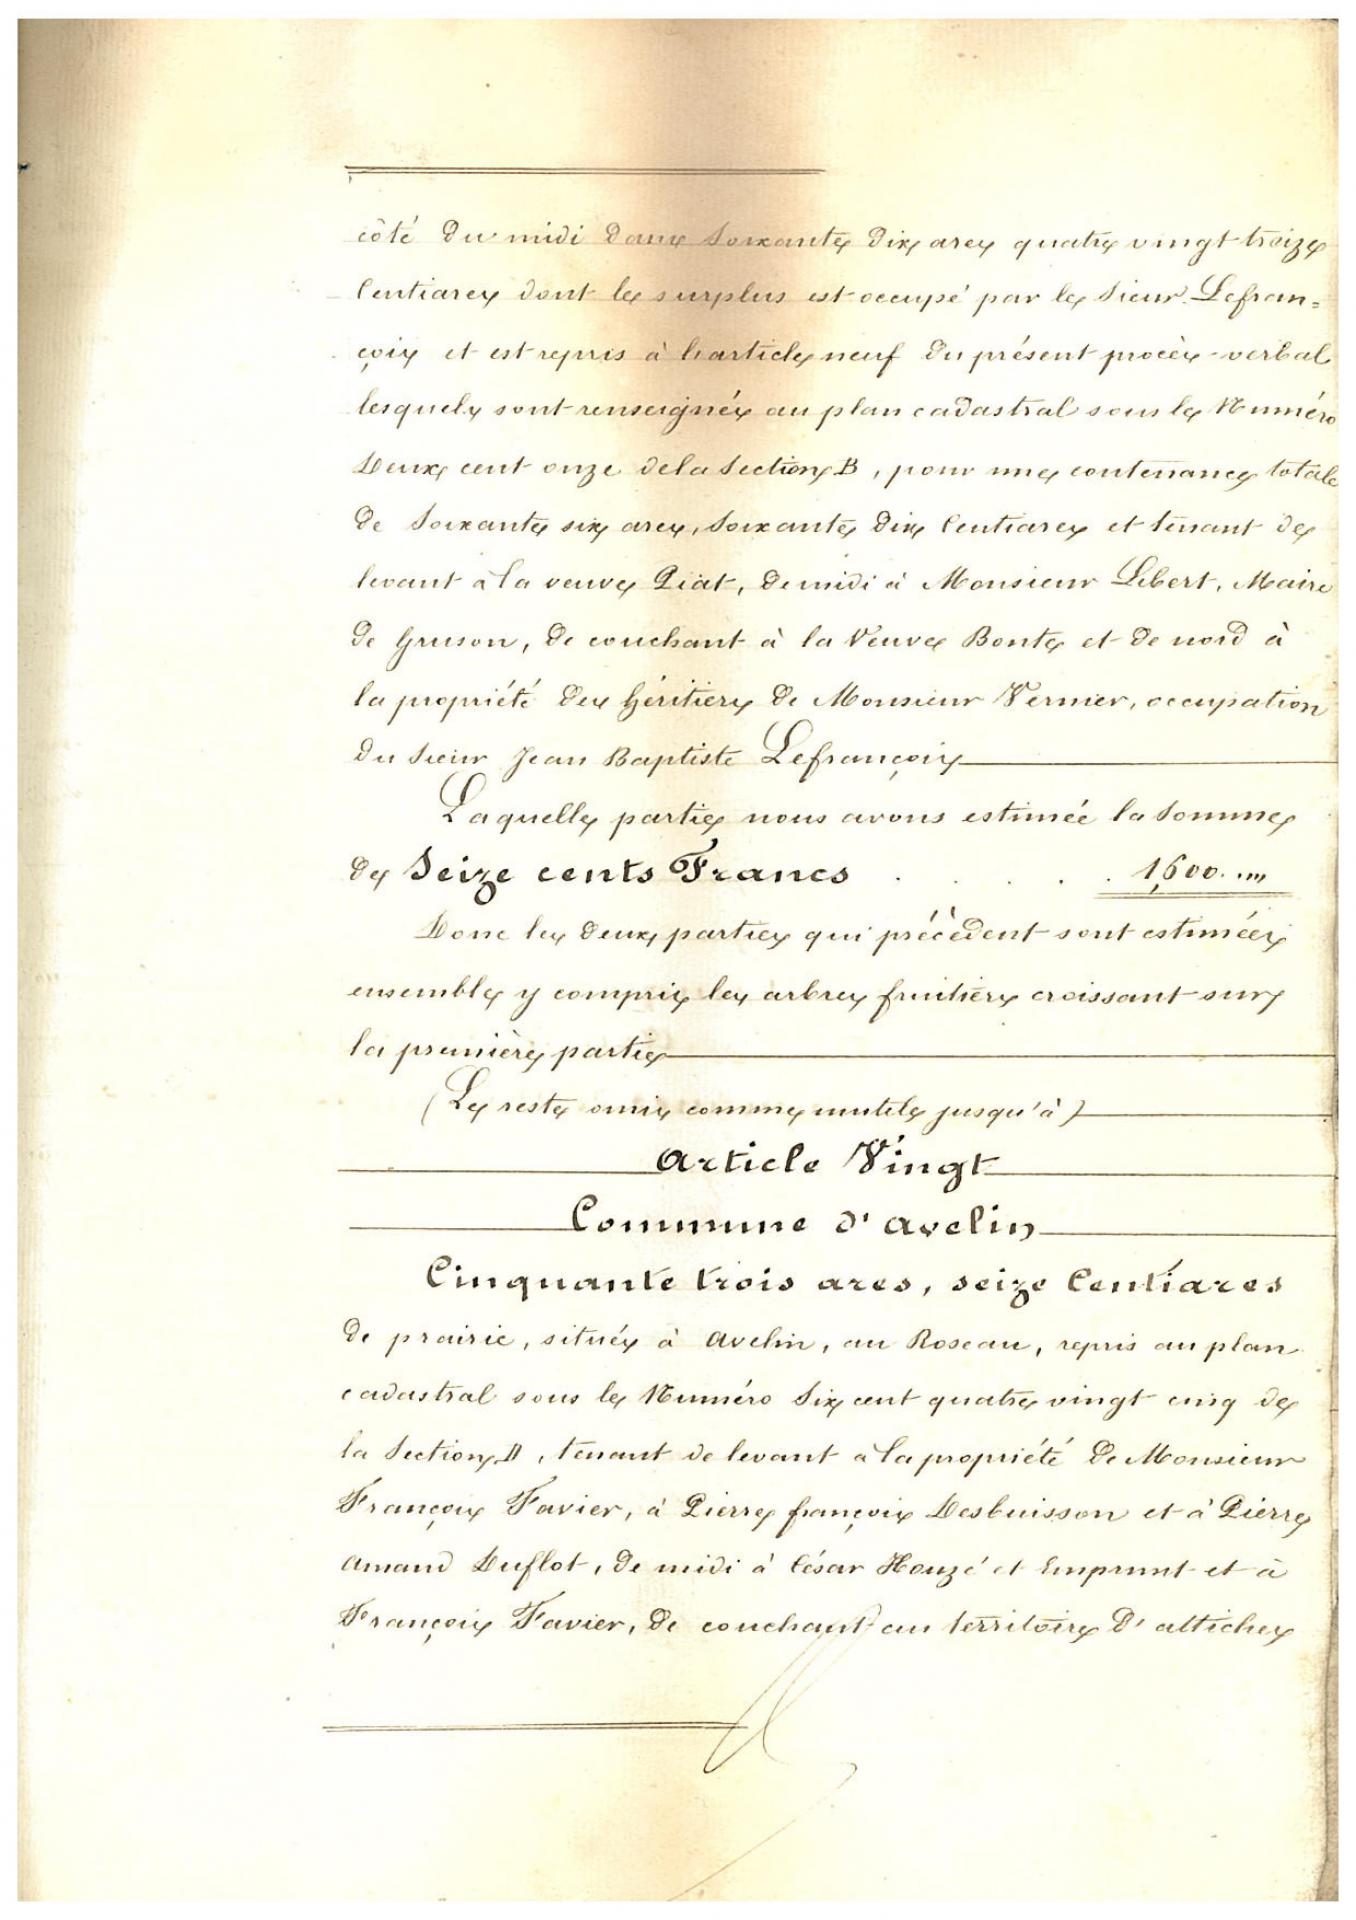 côté du midi dans soixante dix ares quatre vingt treize
Centiares dont le surplus est occupé par le sieur Lefran=
çois et est repris à l'article neuf du présent procès-verbal
lesquels sont renseignés au plan cadastral sous le Numéro
Deux cent onze de la Section B, pour une contenance totale
de soixante six ares, soixante dix Centiares et tenant de
levant à la veuve Piat, de midi à Monsieur Lebert, Maire
de Gruson, de couchant à la Veuve Bonte et de nord à
la propriété des héritiers de Monsieur Vernier, occupation
du sieur Jean Baptiste Lefrançois
Laquelle partie nous avons estimée la somme
de Seize cents Francs . . . . . 1,600. „„
Donc les deux parties qui précèdent sont estimées
ensemble y compris les arbres fruitiers croissant sur
la première partie
(Le reste omis comme inutile jusqu'à)
Article Vingt
Commune d'Avelin
Cinquante trois ares, seize Centiares
de prairie, située à Avelin, au Roseau, repris au plan
cadastral sous le Numéro Six cent quatre vingt cinq de
la Section D, tenant de levant à la propriété de Monsieur
François Favier, à Pierre françois Desbuisson et à Pierre
Amand Duflot, de midi à César Houzé et Emprunt et à
François Favier, de couchant au territoire d'attiches